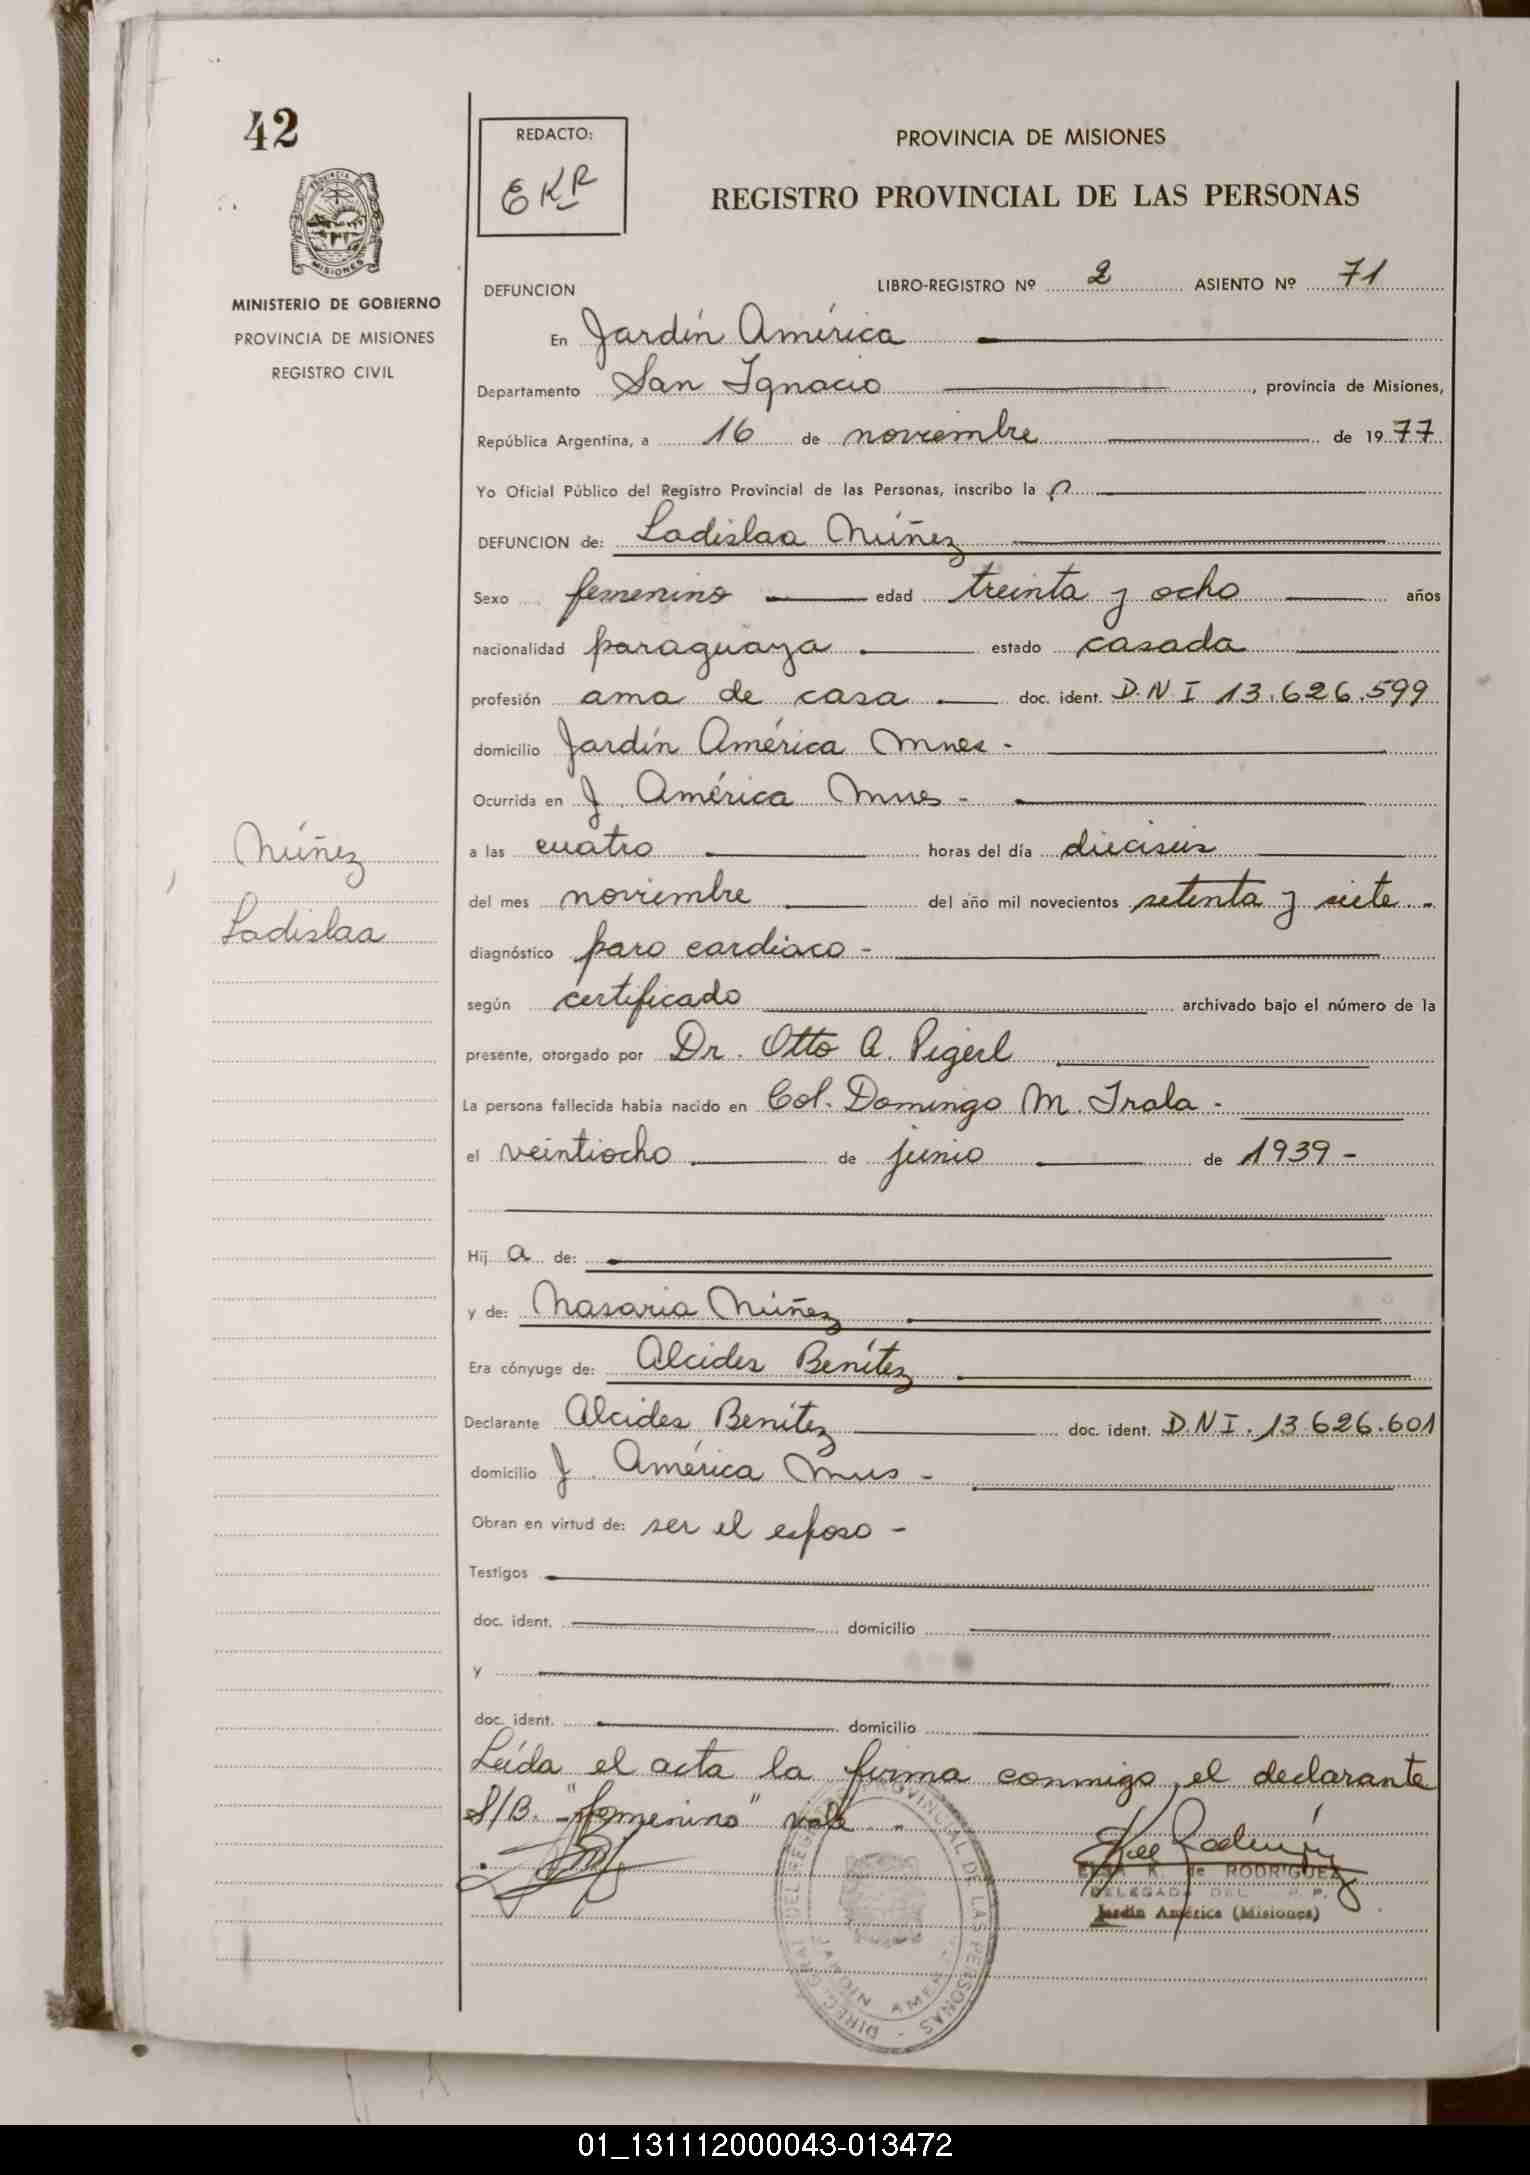 42
REDACTO:
EKR
PROVINCIA DE MISIONES
REGISTRO PROVINCIAL DE LAS PERSONAS
PROVINCIA DE
MISIONES
MINISTERIO DE GOBIERNO
PROVINCIA DE MISIONES
REGISTRO CIVIL
DEFUNCION LIBRO-REGISTRO Nº 2 ASIENTO Nº 71
En Jardín América
Departamento San Ignacio, provincia de Misiones,
República Argentina, a 16 de noviembre de 1977
Yo Oficial Público del Registro Provincial de las Personas, inscribo la
DEFUNCION de: Ladislaa Núñez
Sexo femenino edad treinta y ocho años
nacionalidad paraguaya estado casada
profesión ama de casa doc. ident. D.N.I 13.626.599
domicilio Jardín América Mnes -
Ocurrida en J. América Mnes -
a las cuatro horas del día dieciseis
del mes noviembre del año mil novecientos setenta y siete -
Núñez
Ladislaa
diagnóstico paro cardiaco -
según certificado archivado bajo el número de la
presente, otorgado por Dr. Otto A. Pigerl
La persona fallecida había nacido en Col. Domingo M. Irala -
el veintiocho de junio de 1939 -
Hij a de:
y de: Nasaria Núñez
Era cónyuge de: Alcides Benítez
Declarante Alcides Benítez doc. ident. D.N.I. 13.626.601
domicilio J. América Mnes -
Obran en virtud de: ser el esposo -
Testigos
doc. ident. domicilio
y
doc. ident. domicilio
Leída el acta la firma conmigo, el declarante
S/B. "femenino" vale -
ELSA K. de RODRIGUEZ
DELEGADA DEL R. P. P.
Jardín América (Misiones)
DIREC. GRAL. DEL REGISTRO PROVINCIAL DE LAS PERSONAS
JARDIN AMERICA
01_131112000043-013472